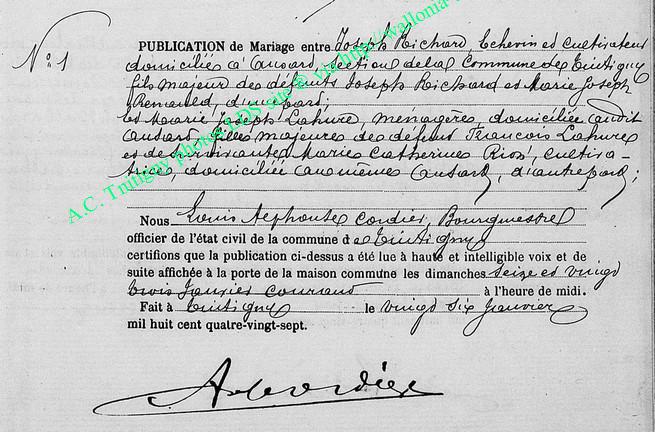 N° 1
PUBLICATION de Mariage entre Joseph Richard, Echevin et cultivateur
domicilié à Ansart, section de la Commune de Tintigny
fils majeur des défunts Joseph Richard et Marie Joseph
d'une part;
et Marie Joseph Lahure, ménagère, domiciliée audit
Ansart, fille majeure des défunt François Lahure
et de survivante Marie Catherine cultiva-
trice, domiciliée au même Ansart, d'autre part;
Nous Louis Alphonse Cordier, Bourgmestre
officier de l'état civil de la commune de Tintigny
certifions que la publication ci-dessus a été lue à haute et intelligible voix et de
suite affichée à la porte de la maison commune les dimanches Seize et vingt
trois Janvier courant à l'heure de midi.
Fait à Tintigny le vingt six Janvier
mil huit cent quatre-vingt-sept.
A.C. Tintigny photos LDS site @ via http://wallonia-